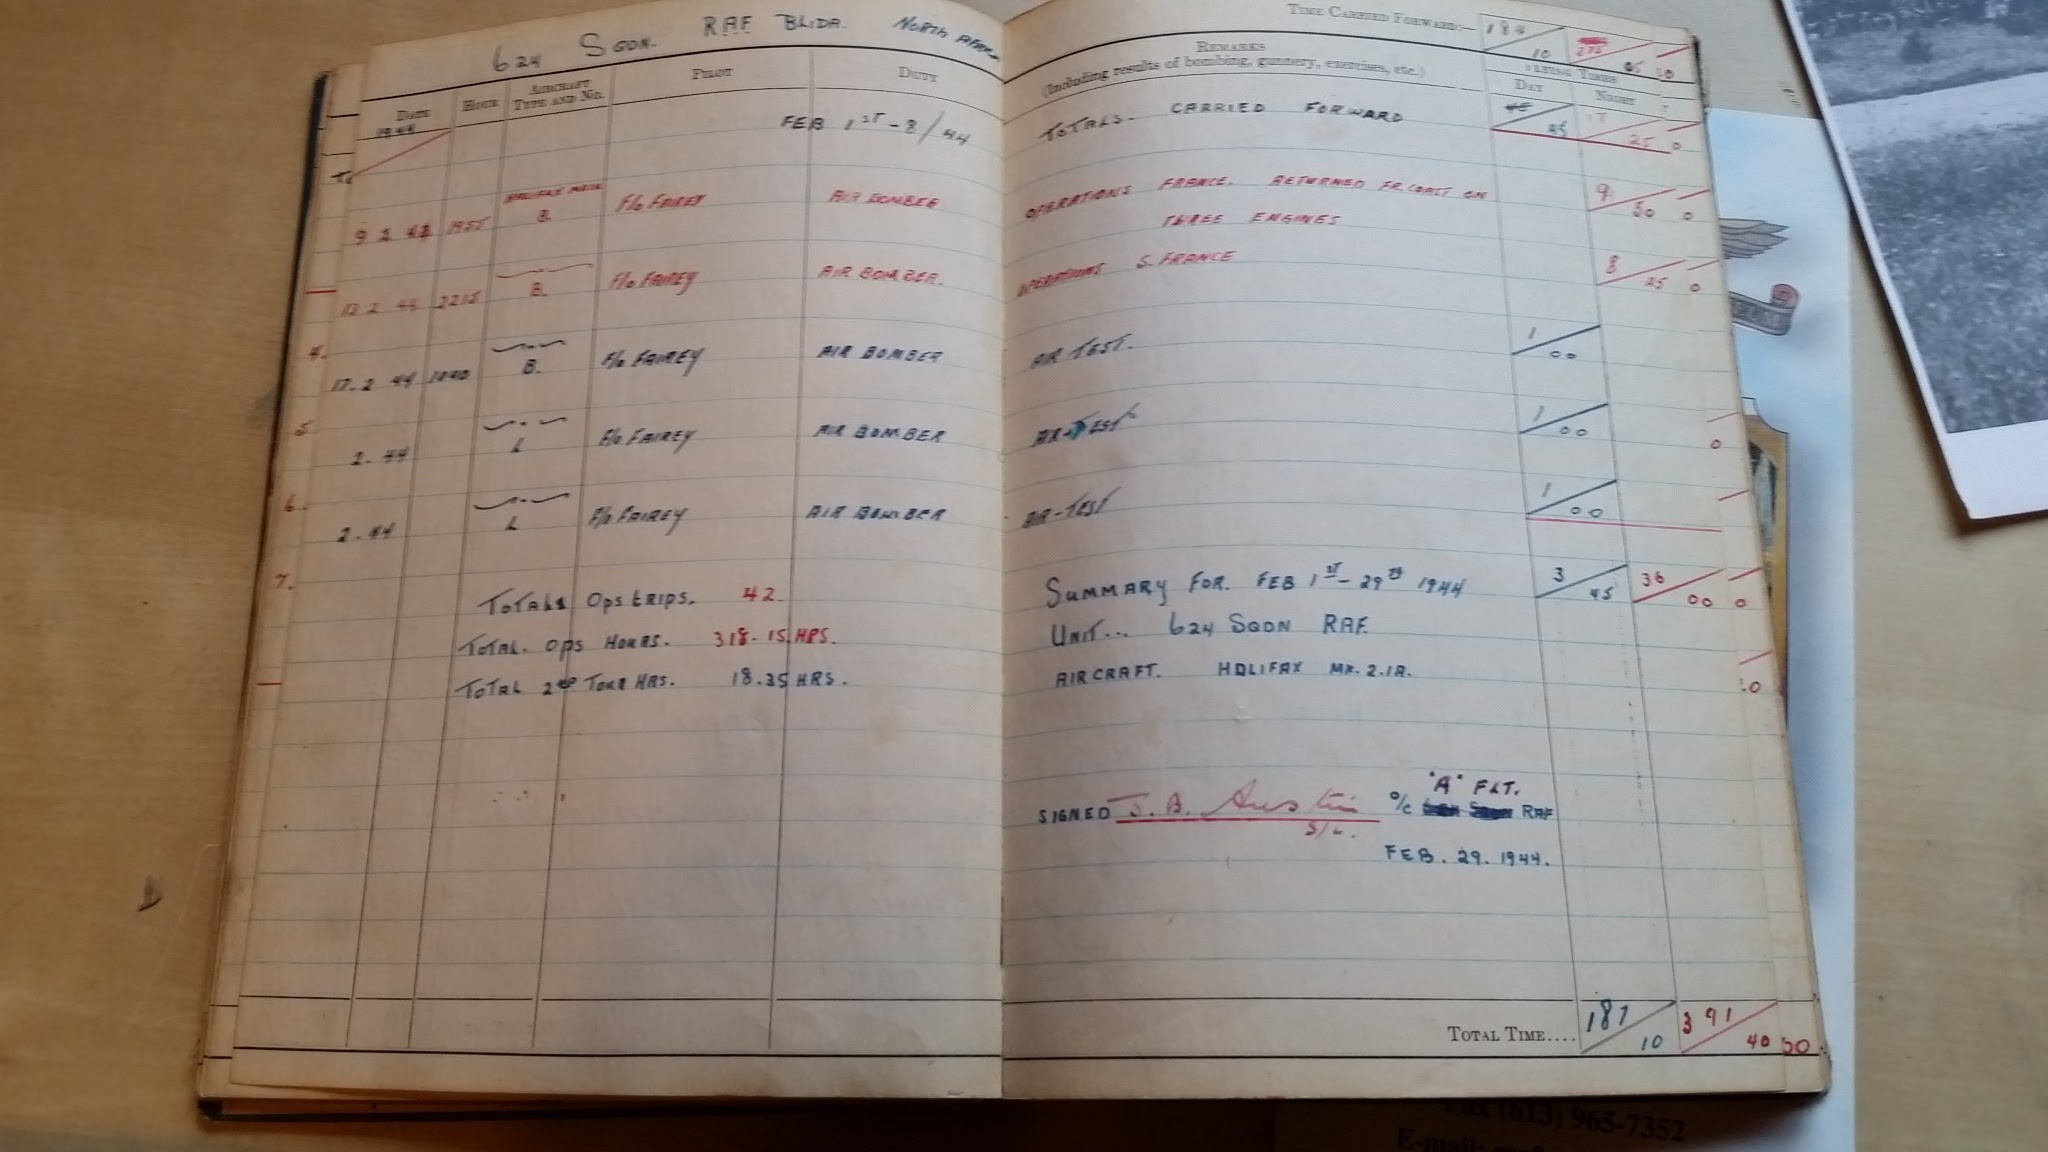 624 SQDN. RAF BLIDA. NORTH AFRICA
DATE HOUR AIRCRAFT TYPE AND NO. PILOT DUTY
1944
FEB 1ST - 8/44
9 2 44 1955 HALIFAX B. F/O FAIREY AIR BOMBER
13 2 44 2215 B. F/O FAIREY AIR BOMBER.
4.
17. 2 44 B. F/O FAIREY AIR BOMBER
5
2. 44 L F/O FAIREY AIR BOMBER
6.
2. 44 L F/O FAIREY AIR BOMBER
7.
TOTALS OPS TRIPS. 42
TOTAL. OPS HOURS. 318.15 HRS.
TOTAL 2ND TOUR HRS. 18.35 HRS.
TIME CARRIED FORWARD:— 184 10
REMARKS
(Including results of bombing, gunnery, exercises, etc.)
FLYING TIMES
DAY NIGHT
TOTALS. CARRIED FORWARD 45 25
OPERATIONS FRANCE. RETURNED FR. COAST ON 9 50
THREE ENGINES
OPERATIONS S. FRANCE 8 45
AIR TEST. 1 00
AIR-TEST 1 00
AIR-TEST 1 00
SUMMARY FOR. FEB 1ST - 29TH 1944 3 45 36 00
UNIT... 624 SQDN RAF.
AIRCRAFT. HOLIFAX MK. 2.1A.
"A" FLT.
SIGNED J. B. Austin O/C RAF
S/L.
FEB. 29. 1944.
TOTAL TIME.... 187 10 391 40
Fax (613) 965-7352
E-mail: